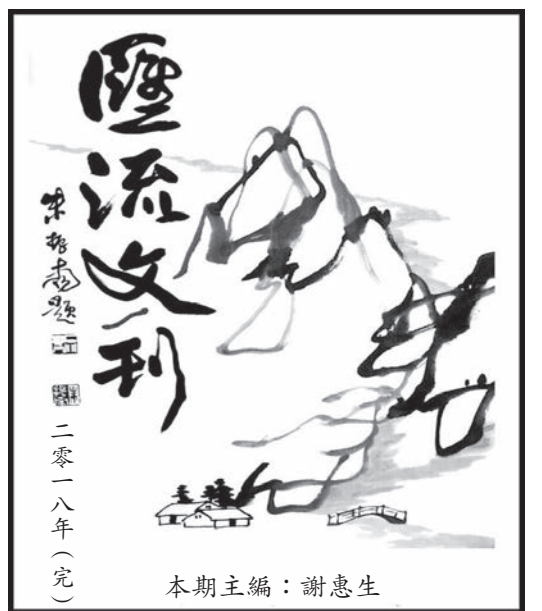 匯流文刊
朱振南題
二零一八年(完)
本期主編：謝惠生